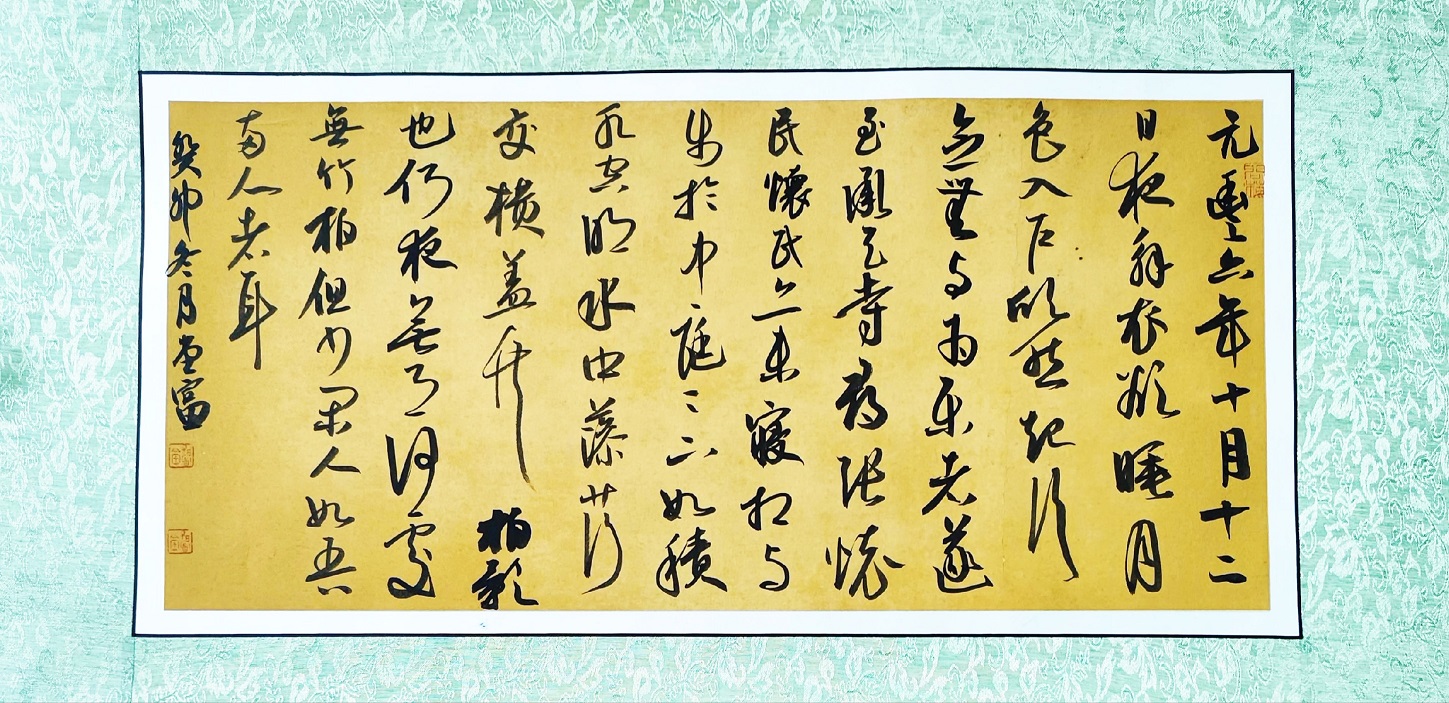 元豐六年十月十二
日夜解衣欲睡月
色入户欣然起行
念無与為樂者遂
至承天寺尋張懷
民懷民亦未寢相与
步於中庭々下如積
水空明水中藻荇
交橫蓋竹柏影
也何夜無月何處
無竹柏但少閑人如吾
兩人者耳
癸卯冬月富